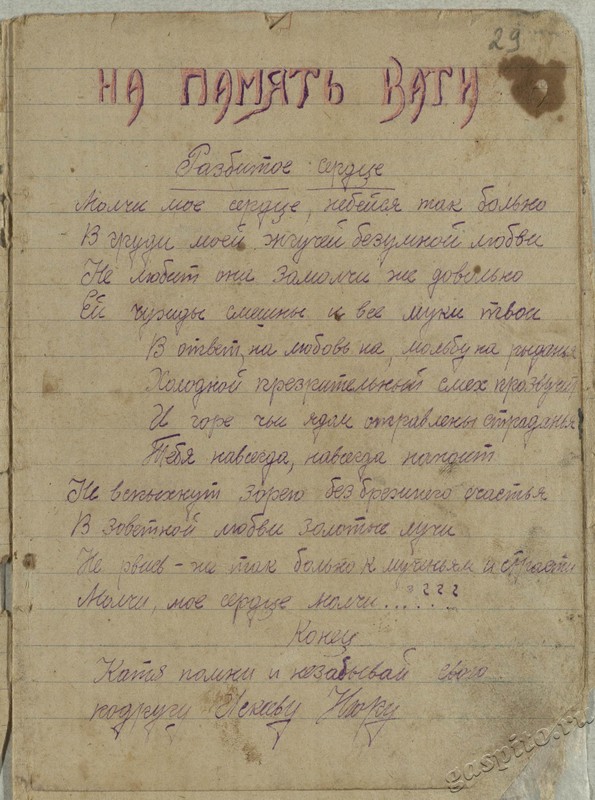 29
НА ПАМЯТЬ КАТИ
Разбитое сердце
Молчи мое сердце, небейся так больно
В груди моей жгучей безумной любви
Не любит она замолчи же довольно
Ей чужды смешны и все муки твои
В ответ, на любовь на, мольбу на рыданья
Холодной презрительный смех прозвучит
И горе чьи ядом отравлены страданья
Тебя навсегда, навсегда
Не вспыхнут зарею безбрежного счастья
В зоветной любви золотые лучи
Не рвись - на так больно к мученьям и страсти
Молчи, мое сердце молчи......???
Конец
Катя помни и незабывай свою
подругу Нюру
gaspito.ru